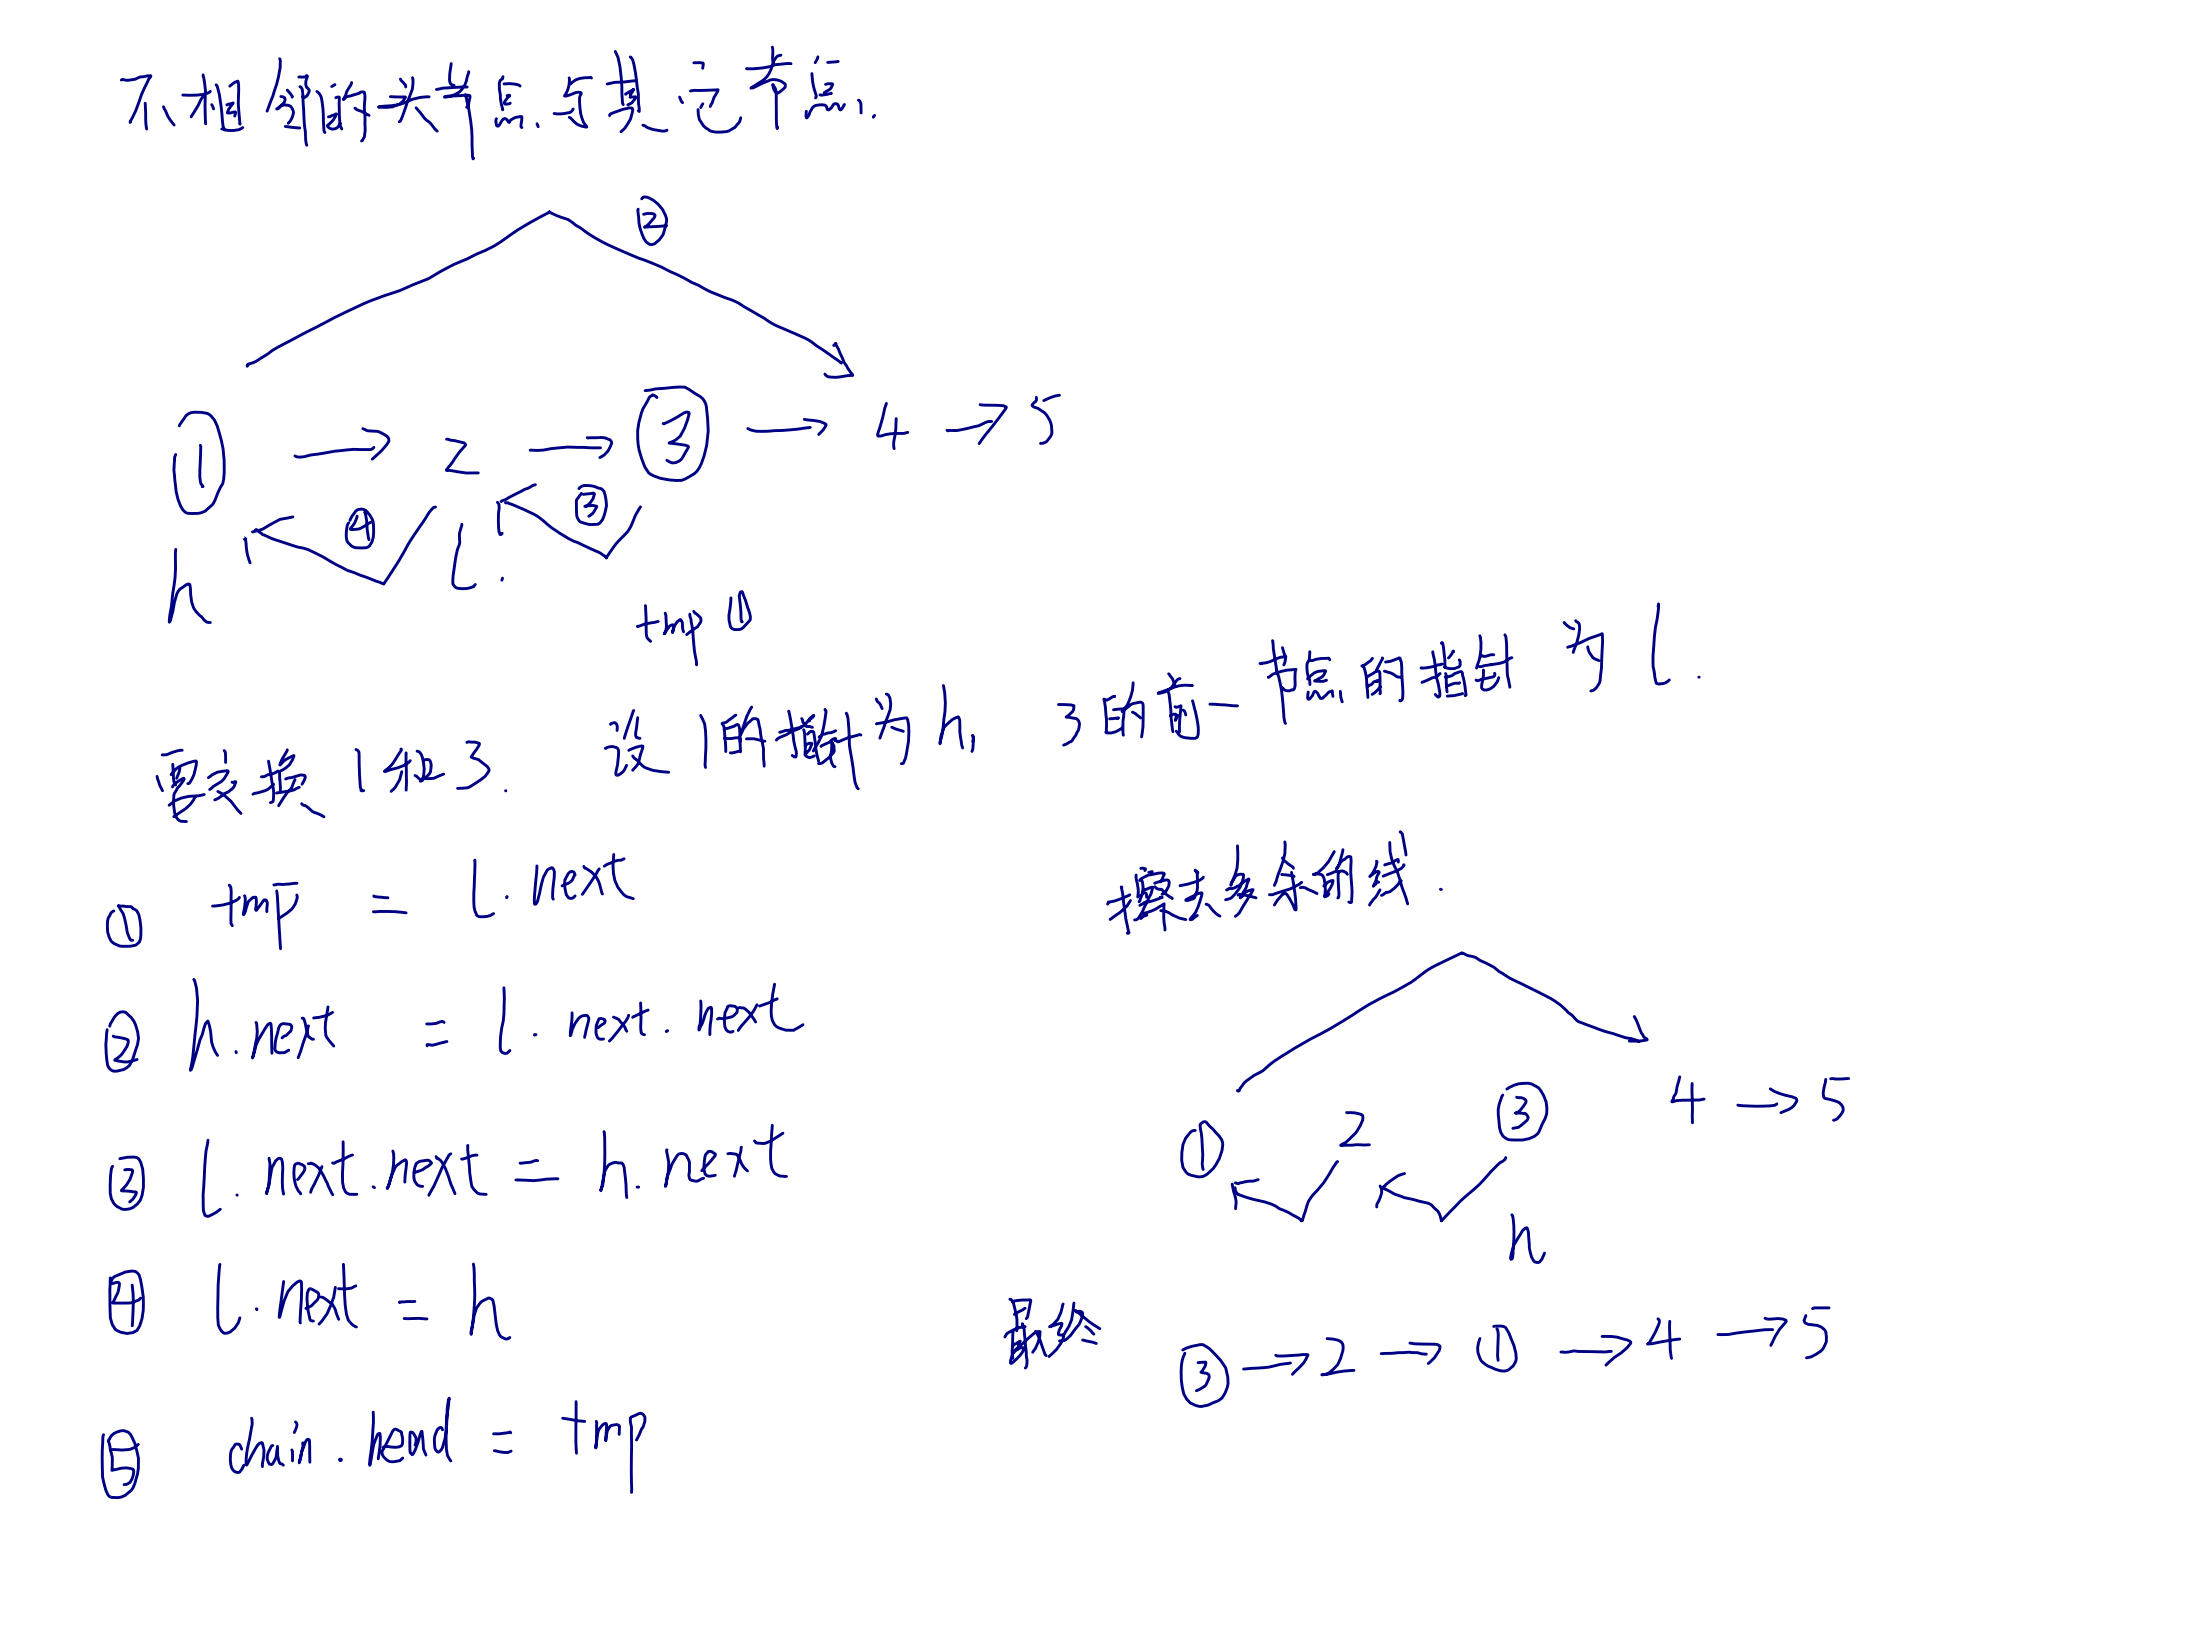 不相邻的头节点与其它节点.
②
① → 2 → ③ → 4 → 5
④ ③
h l.
tmp ①
要交换 1和3. 设 1的指针为h, 3的前一节点的指针 为 l.
① tmp = l.next
② h.next = l.next.next
③ l.next.next = h.next
④ l.next = h
⑤ chain.head = tmp
擦去多余的线.
① 2 ③ 4 → 5
h
最终 ③ → 2 → ① → 4 → 5